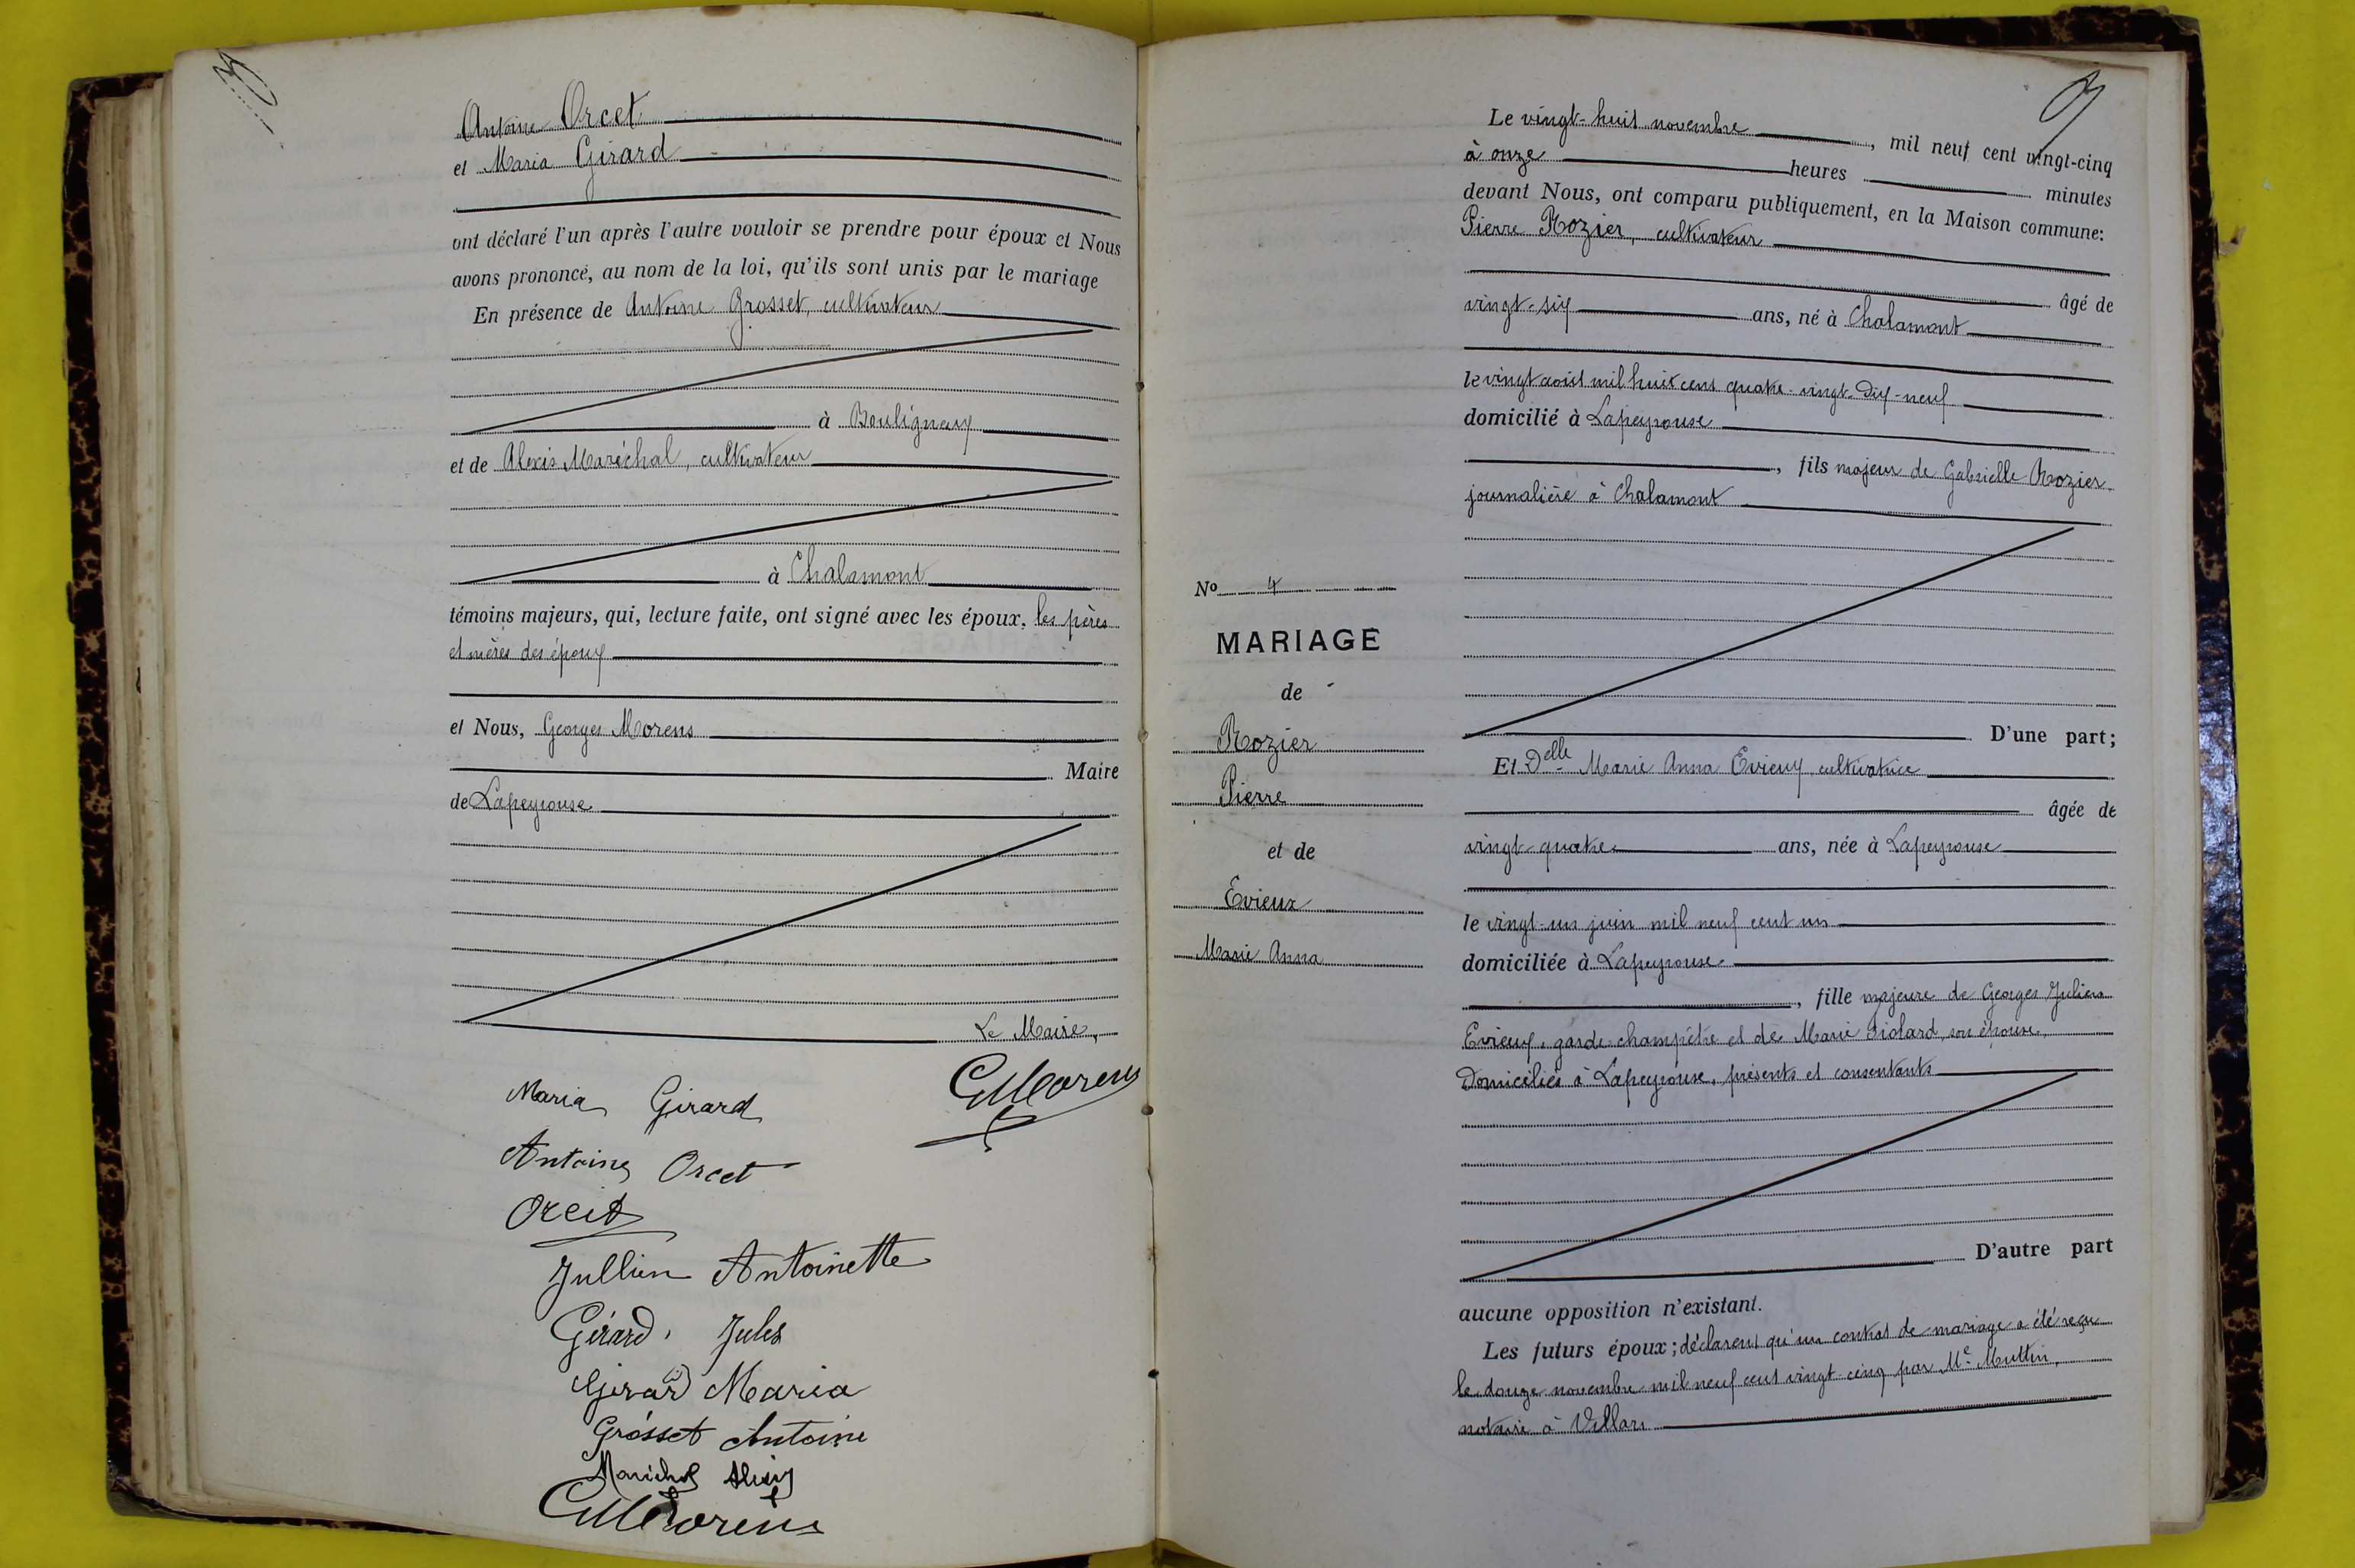 Antoine Orcet
et Maria Girard
ont déclaré l'un après l'autre vouloir se prendre pour époux et Nous
avons prononcé, au nom de la loi, qu'ils sont unis par le mariage
En présence de Antoine Grosset, cultivateur
à Bouligneux
et de Alexis Maréchal, cultivateur
à Chalamont
témoins majeurs, qui, lecture faite, ont signé avec les époux, les pères
et mères des époux
et Nous, Georges Morens
Maire
de Lapeyrouse
Le Maire,
GMorens
Maria Girard
Antoine Orcet
Orcet
Jullien Antoinette
Girard Jules
Girard Maria
Grosset Antoine
Maréchal Alexis
GMorens
9
Le vingt-huit novembre, mil neuf cent vingt-cinq
à onze heures minutes
devant Nous, ont comparu publiquement, en la Maison commune:
Pierre Rozier, cultivateur
âgé de
vingt-six ans, né à Chalamont
le vingt août mil huit cent quatre-vingt-dix-neuf
domicilié à Lapeyrouse
, fils majeur de Gabrielle Rozier
journalière à Chalamont
D'une part;
Et Delle Marie Anna Evieux, cultivatrice
âgée de
vingt-quatre ans, née à Lapeyrouse
le vingt-un juin mil neuf cent un
domiciliée à Lapeyrouse
, fille majeure de Georges Julien
Evieux, garde-champêtre et de Marie Piolard, son épouse,
domiciliés à Lapeyrouse, présents et consentants
D'autre part
aucune opposition n'existant.
Les futurs époux; déclarent qu'un contrat de mariage a été reçu
le douze novembre mil neuf cent vingt-cinq par Me Muttin,
notaire à Villars
No 4
MARIAGE
de
Rozier
Pierre
et de
Evieux
Marie Anna